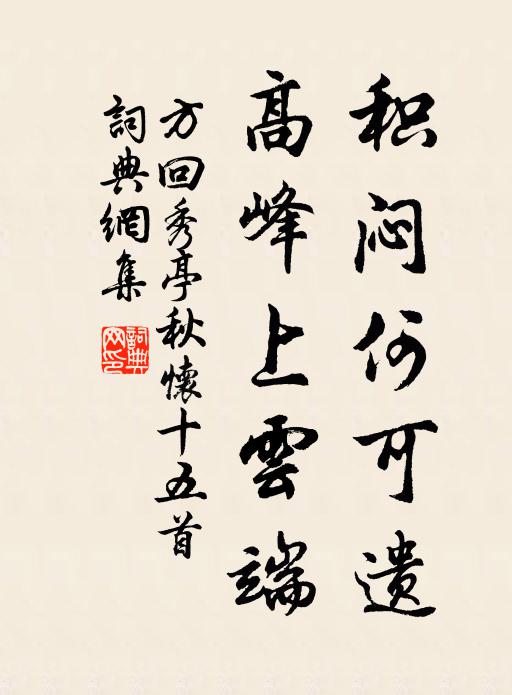 积闷何可遗
高峰上雲端
方回秀亭秋懷十五首
詞典網集
詞典網印